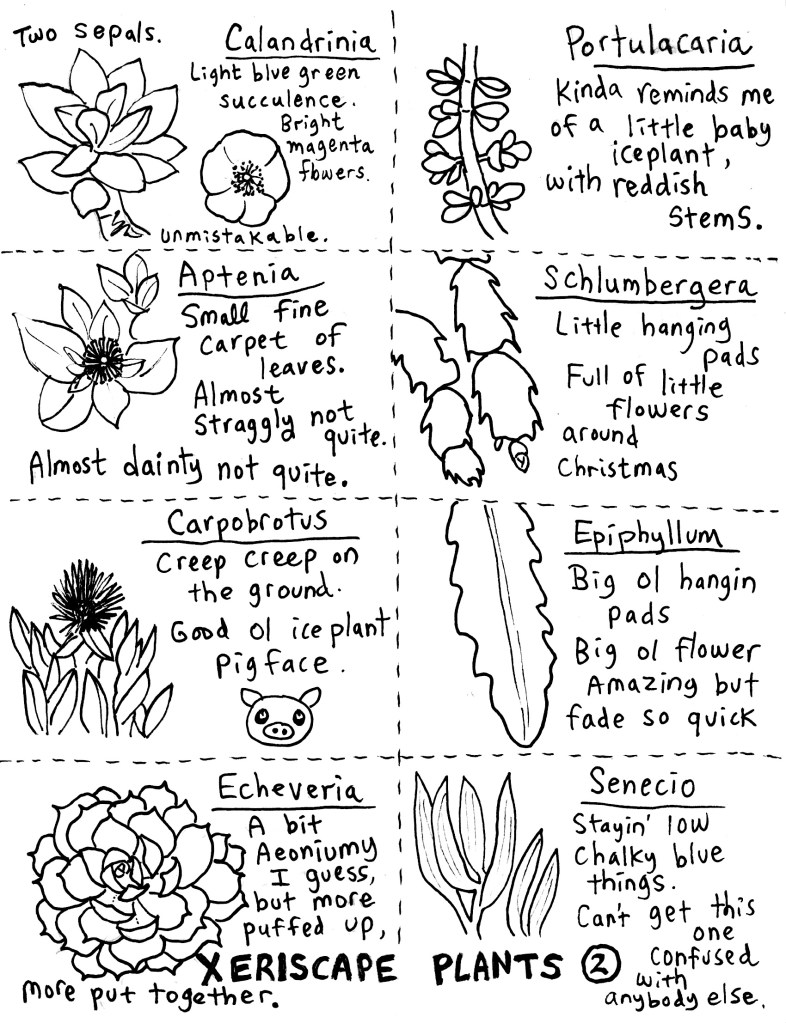 Two sepals.
Calandrinia
Light blue green
succulence.
Bright
magenta
flowers.
unmistakable.
Portulacaria
Kinda reminds me
of a little baby
iceplant,
with reddish
stems.
Aptenia
Small fine
carpet of
leaves.
Almost
straggly not
quite.
Almost dainty not quite.
Schlumbergera
Little hanging
pads
Full of little
flowers
around
Christmas
Carpobrotus
Creep creep on
the ground.
Good ol iceplant
Pigface.
Epiphyllum
Big ol hangin
pads
Big ol flower
Amazing but
fade so quick
Echeveria
A bit
Aeoniumy
I guess,
but more
puffed up,
more put together.
Senecio
Stayin' low
Chalky blue
things.
Can't get this
one
confused
with
anybody else.
XERISCAPE PLANTS 2